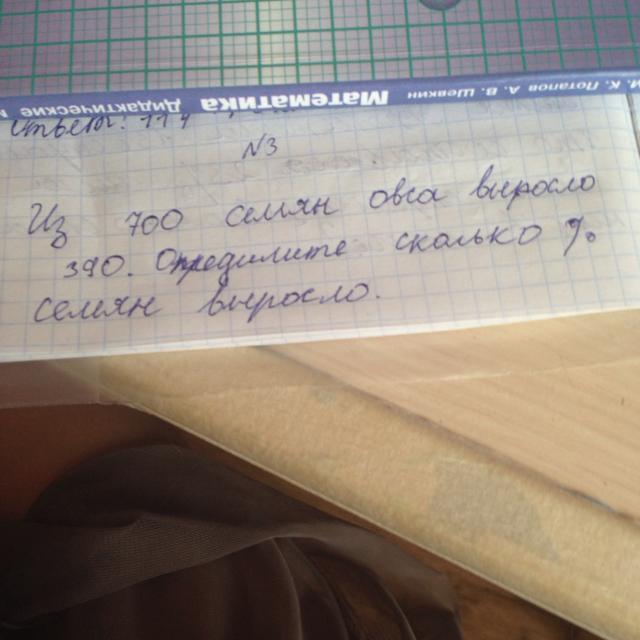 К. Потапов А. В. Шевкин Математика Дидактические
Ответ: 114
N3
Из 700 семян овса выросло
390. Определите сколько %
семян выросло.